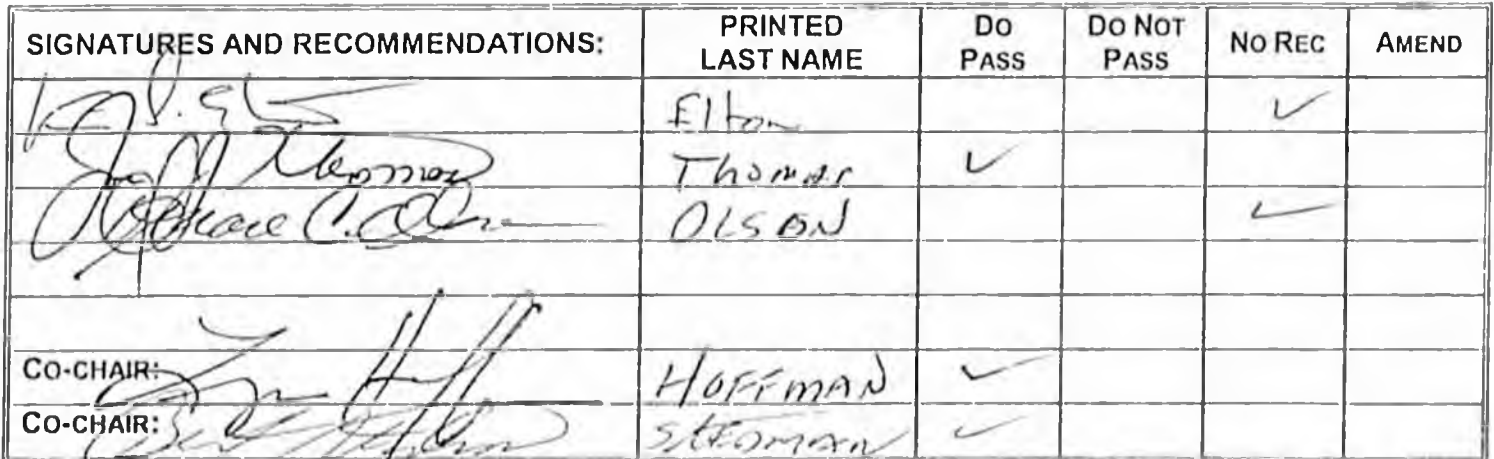 SIGNATURES AND RECOMMENDATIONS: PRINTED LAST NAME DO PASS DO NOT PASS NO REC AMEND
Elton ✓
Thomas ✓
OLSON ✓
CO-CHAIR: HOFFMAN ✓
CO-CHAIR: STEDMAN ✓